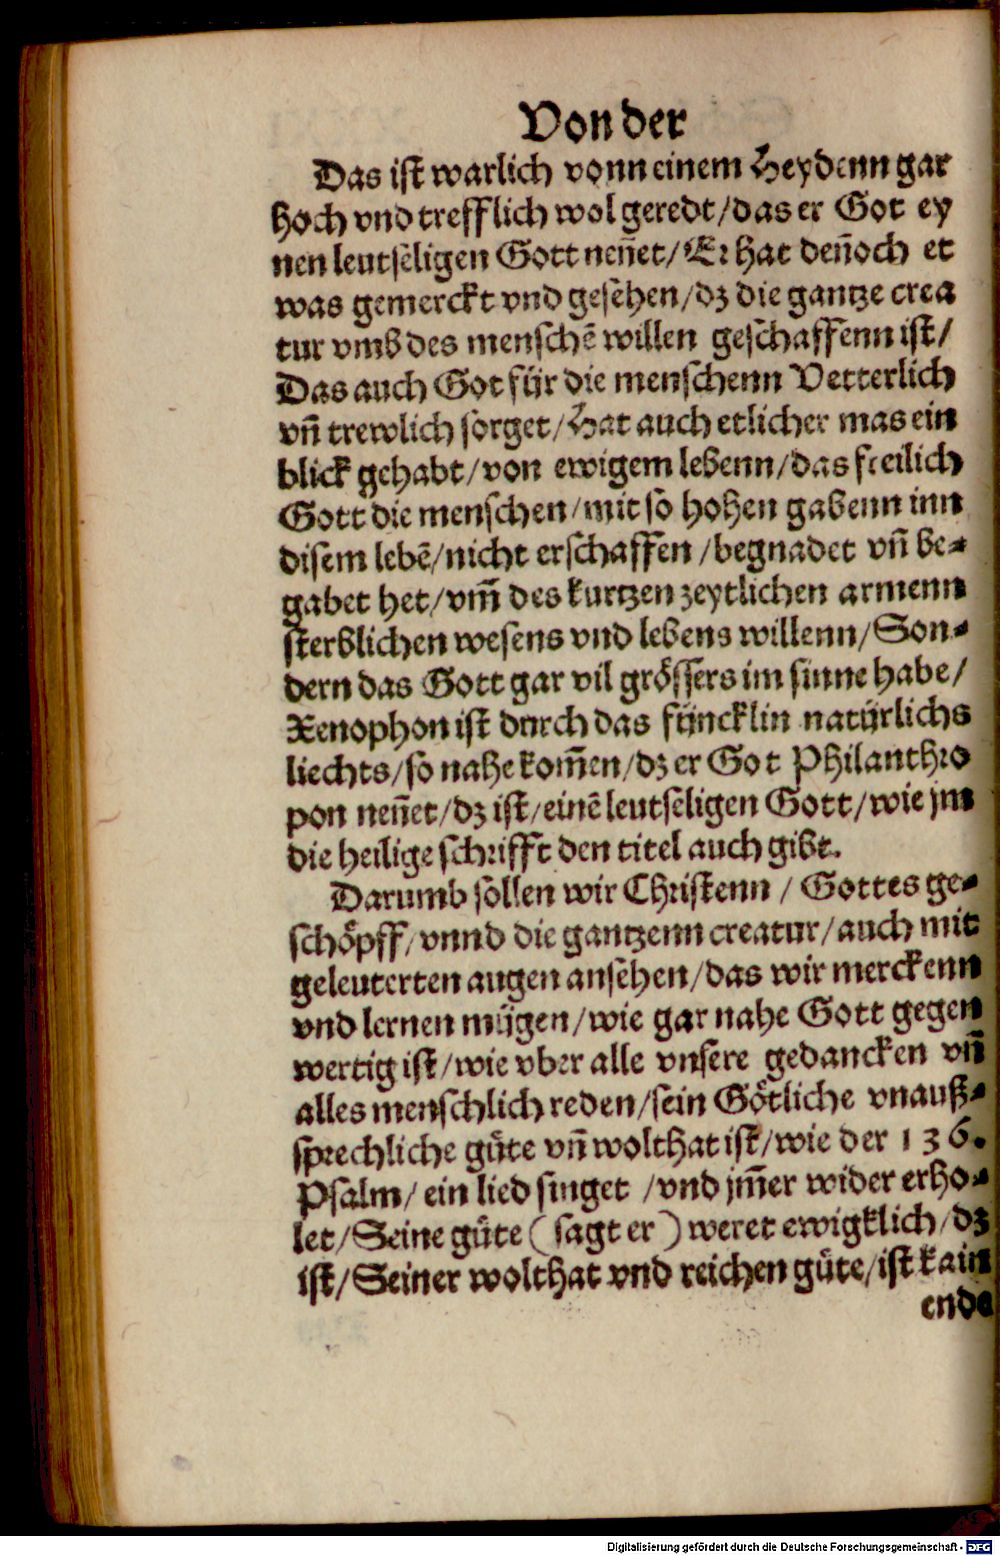 Von der
Das ist warlich vonn einem Heydenn gar
hoch vnd trefflich wol geredt/das er Got ey
nen leutseligen Gott neñet/Er hat deñoch et
was gemerckt vnd gesehen/dz die gantze crea
tur vmb des menschē willen geschaffenn ist/
Das auch Got für die menschenn Vetterlich
vñ trewlich sorget/Hat auch etlicher mas ein
blick gehabt/von ewigem lebenn/das freilich
Gott die menschen/mit so hohen gabenn inn
disem lebē/nicht erschaffen/begnadet vñ be-
gabet het/vm̃ des kurtzen zeytlichen armenn
sterblichen wesens vnd lebens willenn/Son-
dern das Gott gar vil grössers im sinne habe/
Xenophon ist durch das füncklin natürlichs
liechts/so nahe kom̃en/dz er Got Philanthro
pon neñet/dz ist/einē leutseligen Gott/wie jm
die heilige schrifft den titel auch gibt.
Darumb sollen wir Christenn/Gottes ge-
schöpff/vnnd die gantzenn creatur/auch mit
geleuterten augen ansehen/das wir merckenn
vnd lernen mügen/wie gar nahe Gott gegen
wertig ist/wie vber alle vnsere gedancken vñ
alles menschlich reden/sein Götliche vnauß-
sprechliche güte vñ wolthat ist/wie der 136.
Psalm/ein lied singet/vnd jm̃er wider erho-
let/Seine güte (sagt er) weret ewigklich/dz
ist/Seiner wolthat vnd reichen güte/ist kain
ende
Digitalisierung gefördert durch die Deutsche Forschungsgemeinschaft - DFG